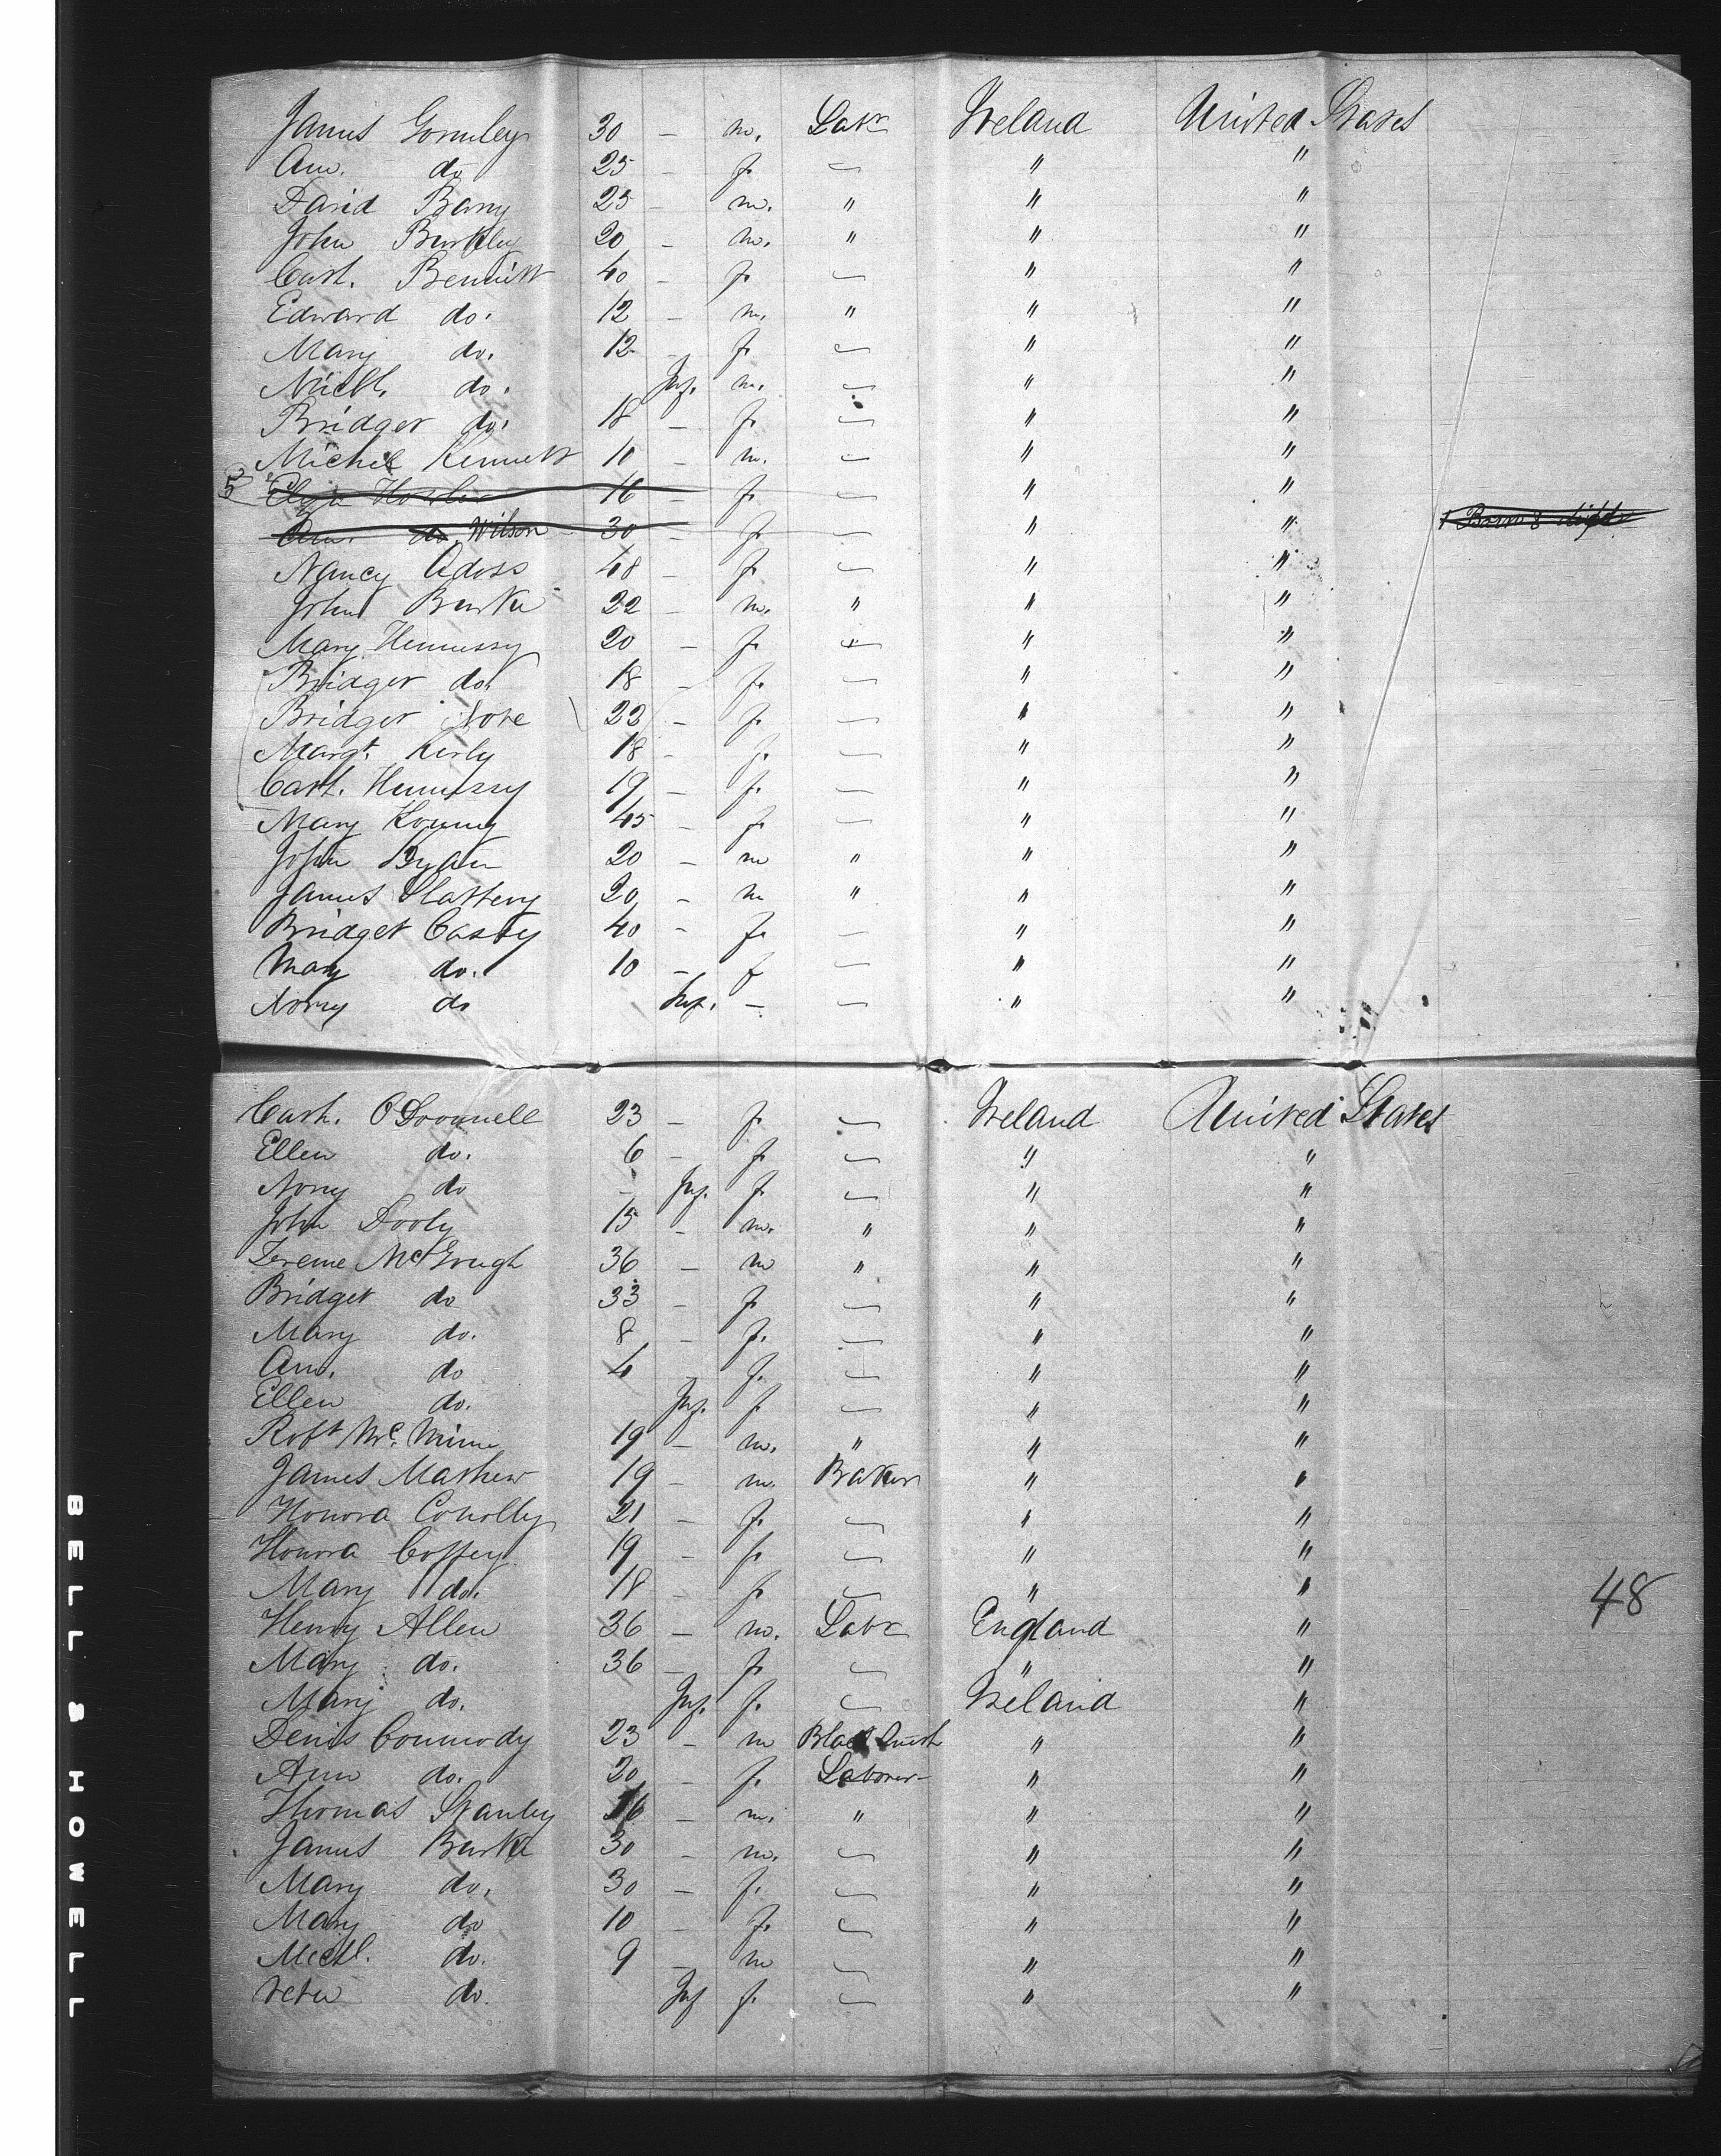 James Gormley 30 — m. Labr Ireland United States
Ann. do 25 — f. — " "
David Barry 25 — m. " " "
John Burkley 20 — m. " " "
Cath. Bennett 40 — f. — " "
Edward do. 12 — m. " " "
Mary do. 12 — f. — " "
Michl. do. Inf. m. — " "
Bridget do. 18 — f. — " "
Michel Kennett 10 — m. — " "
5 Eliza 16 — f. — " "
Ann. do. Wilson 30 — f. — " "
Nancy Adoss 48 — f — " "
John Burke 22 — m. " " "
Mary Hennessy 20 — f. — " "
Bridget do. 18 — f. — " "
Bridget Nore 22 — f. — " "
Margt. Kerly 18 — f. — " "
Cath. Hennessy 19 — f. — " "
Mary 45 — f. — " "
John Ryan 20 — m " " "
James Slattery 20 — m " " "
Bridget Casey 40 — f. — " "
Mary do. 10 — f — " "
Norry do Inf. — — " "
Cath. O'Donnell 23 — f. — Ireland United States
Ellen do. 6 — f. — " "
Nory do — Inf. f. — " "
John Dooly 15 — m. " " "
McGrugh 36 — m " " "
Bridget do 33 — f. — " "
Mary do. 8 — f. — " "
Ann. do 4 — f. — " "
Ellen do. Inf. f — " "
Robt Mc. Minn 19 — m. " " "
James Mathew 19 — m. Baker " "
Honora Conolly 21 — f. — " "
Honora Coffey 19 — f. — " "
Mary do. 18 — f. — " "
48
Henry Allen 36 — m. Labr England "
Mary do. 36 — f. — " "
Mary do. Inf. f. — Ireland "
Denis Conmody 23 — m Black Smith " "
Ann do. 20 — f. Laborer " "
Thomas Stanley 16 — m. " " "
James Burke 30 — m. — " "
Mary do. 30 — f. — " "
Mary do 10 — f. — " "
Michl. do. 9 — m — " "
do. Inf f. — " "
BELL & HOWELL